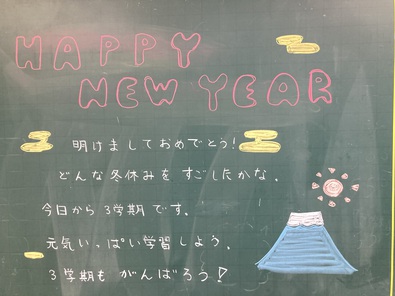 HAPPY
NEW YEAR
明けましておめでとう!
どんな冬休みをすごしたかな。
今日から3学期です。
元気いっぱい学習しよう。
3学期もがんばろう!